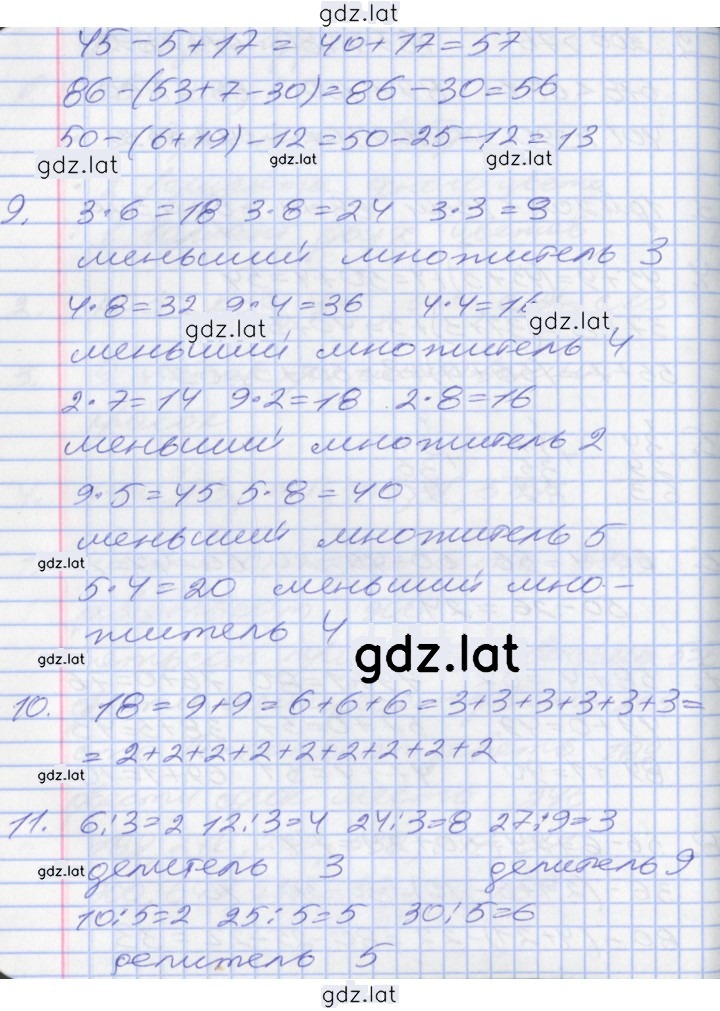 gdz.lat
45-5+17= 40+17=57
86-(53+7-30)=86-30=56
50-(6+19)-12=50-25-12=13
gdz.lat gdz.lat gdz.lat
9. 3·6=18 3·8=24 3·3=9
меньший множитель 3
4·8=32 9·4=36 4·4=16
gdz.lat gdz.lat
меньший множитель 4
2·7=14 9·2=18 2·8=16
меньший множитель 2
9·5=45 5·8=40
меньший множитель 5
gdz.lat
5·4=20 меньший мно-
житель 4
gdz.lat gdz.lat
10. 18=9+9=6+6+6=3+3+3+3+3+3=
=2+2+2+2+2+2+2+2+2
gdz.lat
11. 6:3=2 12:3=4 24:3=8 27:9=3
gdz.lat делитель 3 делитель 9
10:5=2 25:5=5 30:5=6
делитель 5
gdz.lat